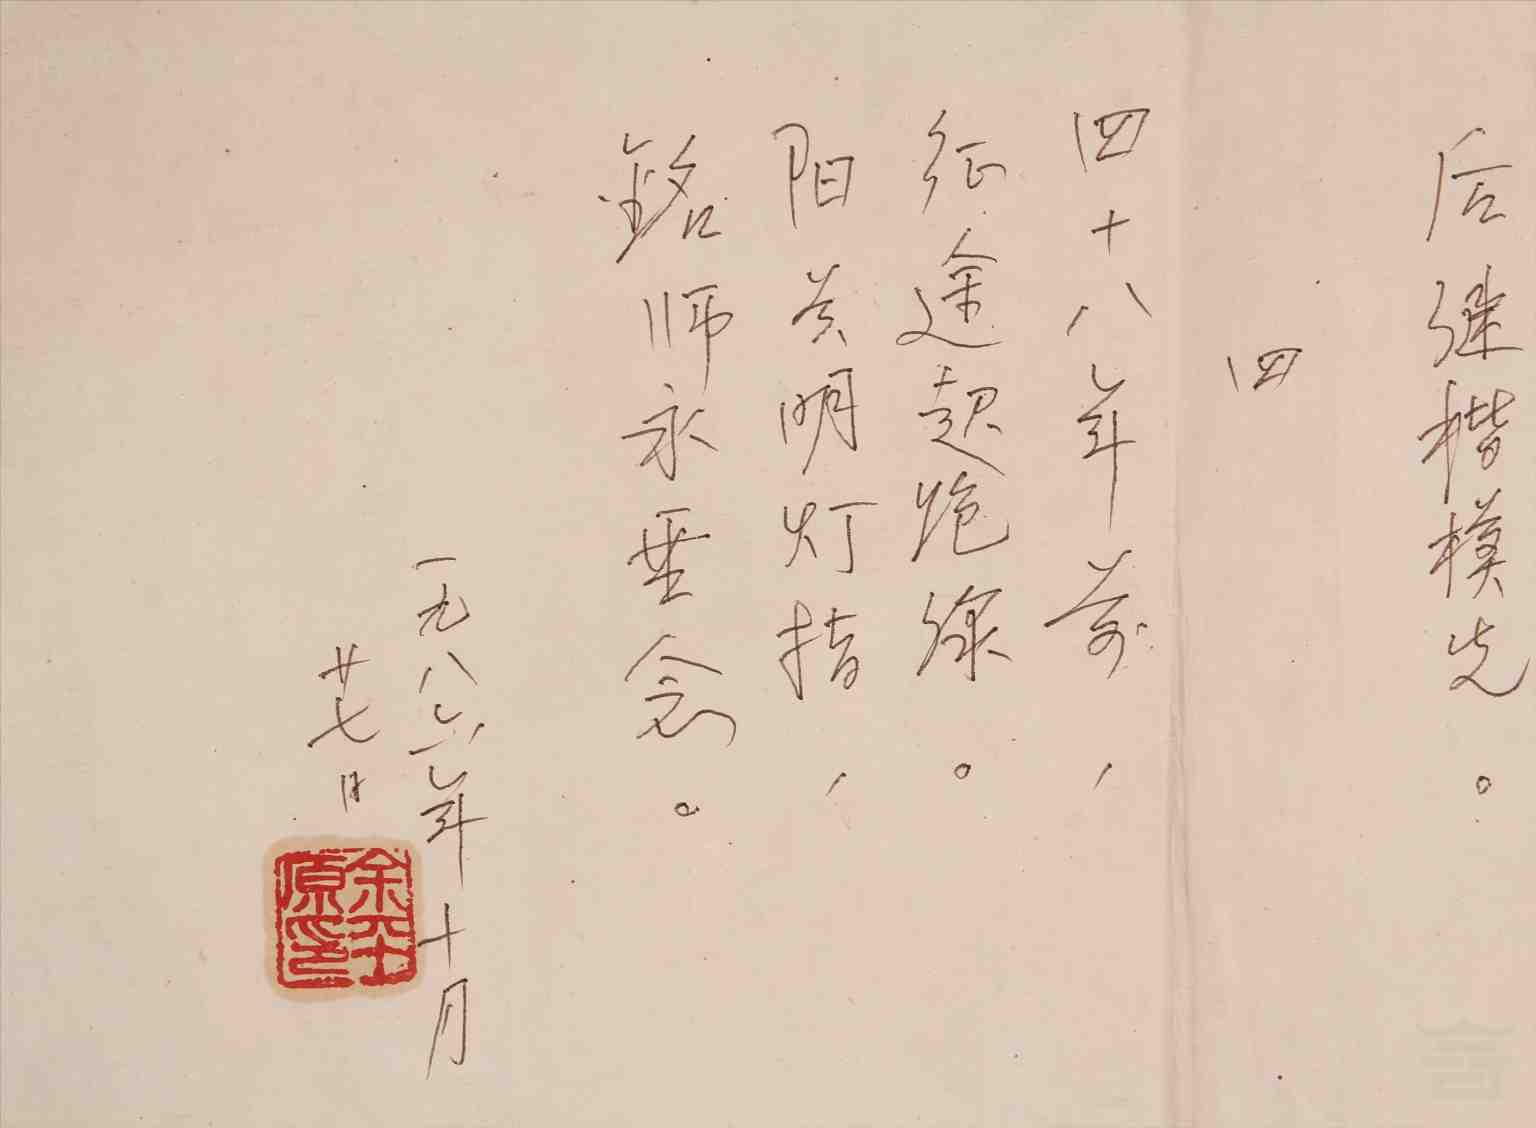 后继楷模先。
四
四十八年前，
征途起跑線。
阳关明灯指，
銘师永垂念。
一九八六年十月
廿七日